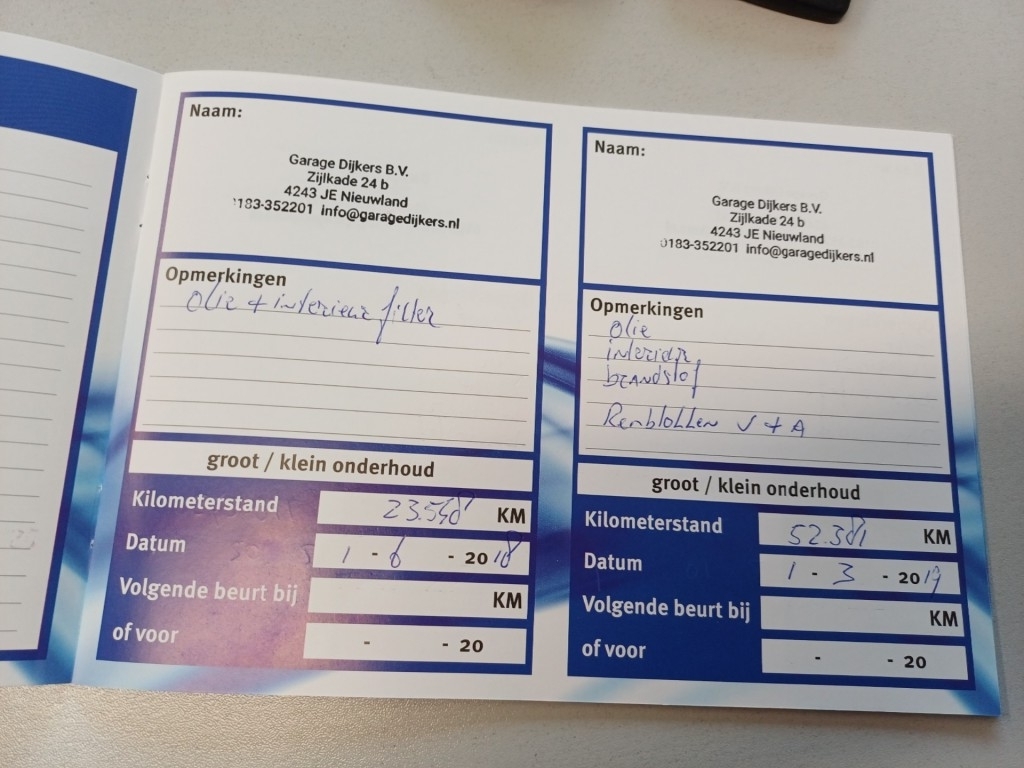 Naam:
Garage Dijkers B.V.
Zijlkade 24 b
4243 JE Nieuwland
0183-352201 info@garagedijkers.nl
Opmerkingen
Olie + interieur filter
groot / klein onderhoud
Kilometerstand 23.548 KM
Datum 1 - 6 - 2018
Volgende beurt bij KM
of voor - - 20
Naam:
Garage Dijkers B.V.
Zijlkade 24 b
4243 JE Nieuwland
0183-352201 info@garagedijkers.nl
Opmerkingen
Olie
interieur
brandstof
Remblokken V + A
groot / klein onderhoud
Kilometerstand 52.381 KM
Datum 1 - 3 - 2019
Volgende beurt bij KM
of voor - - 20